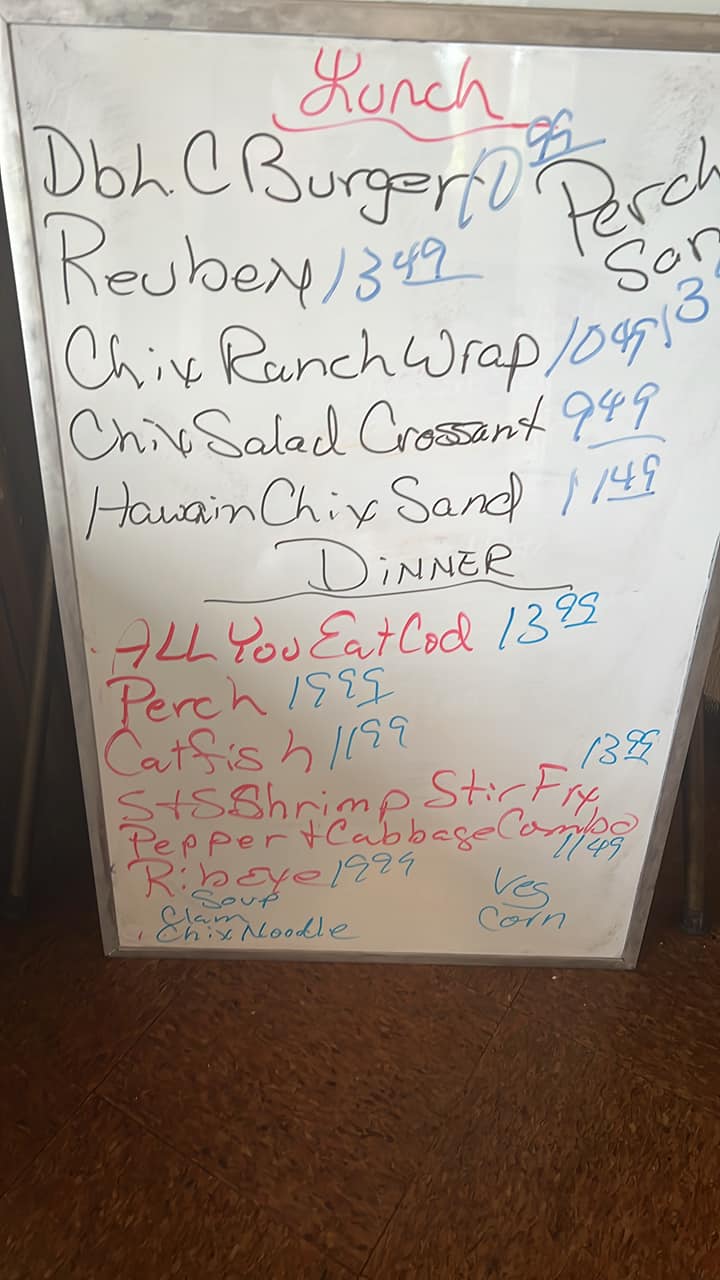 Lunch
Dbh. C Burger 10 99
Perch
San
13
Reuben 13 49
Chix Ranch Wrap 10 49
Chix Salad Crossant 9 49
Hawain Chix Sand 11 49
DiNNER
ALL You Eat Cod 13 99
Perch 19 99
Catfish 11 99
S+S Shrimp Stir Fry 13 99
Pepper + Cabbage Combo 11 49
Ribeye 19 99
Soup
Clam
Chix Noodle
Veg
Corn